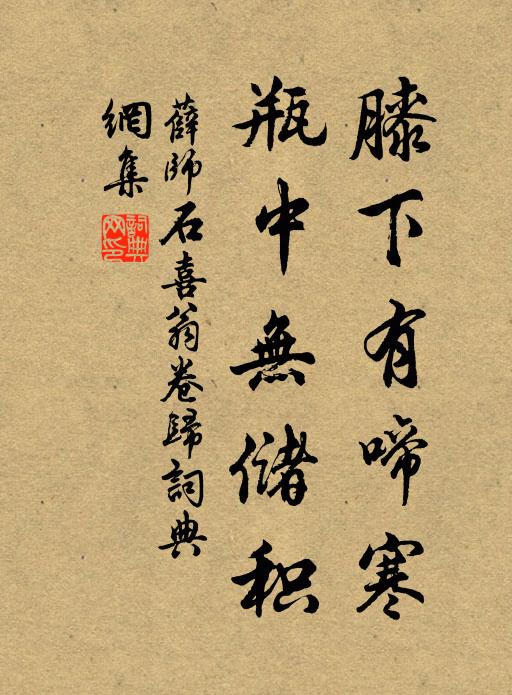 膝下有啼寒
瓶中無儲积
薛師石喜翁卷歸詞典
網集
詞典网印